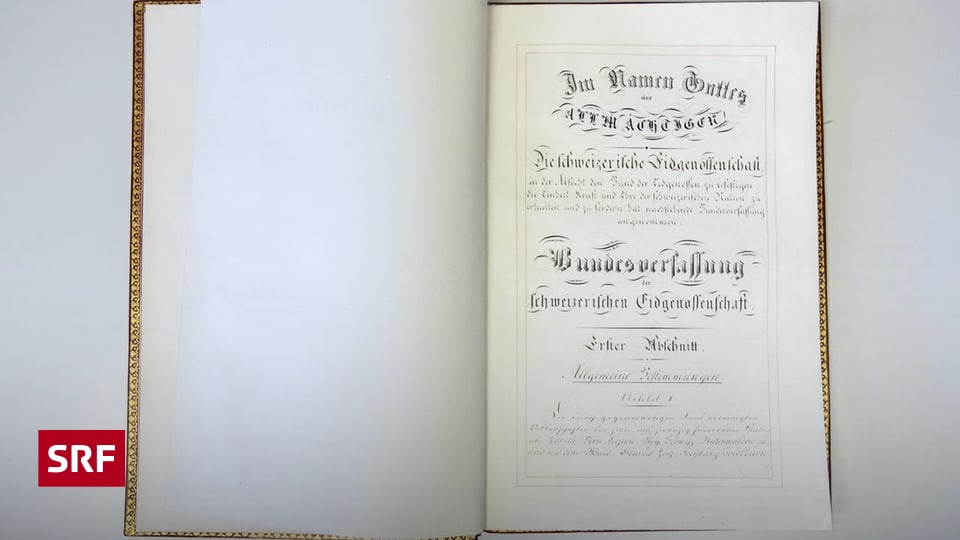 Im Namen Gottes
des
ALLMÄCHTIGEN!
Die schweizerische Eidgenossenschaft,
in der Absicht den Bund der Eidgenossen zu befestigen,
die Einheit Kraft und Ehre der schweizerischen Nation zu
erhalten und zu fördern hat nachstehende Bundesverfassung
angenommen:
Bundesverfassung
der
schweizerischen Eidgenossenschaft.
Erster Abschnitt.
Allgemeine Bestimmungen
Artikel 1
Die durch gegenwärtigen Bund vereinigten
Völkerschaften der zwei und zwanzig souveränen Kantone
als Zürich Bern Luzern Ury Schwyz Unterwalden ob
und nid dem Wald Glarus Zug Freyburg Solothurn
SRF